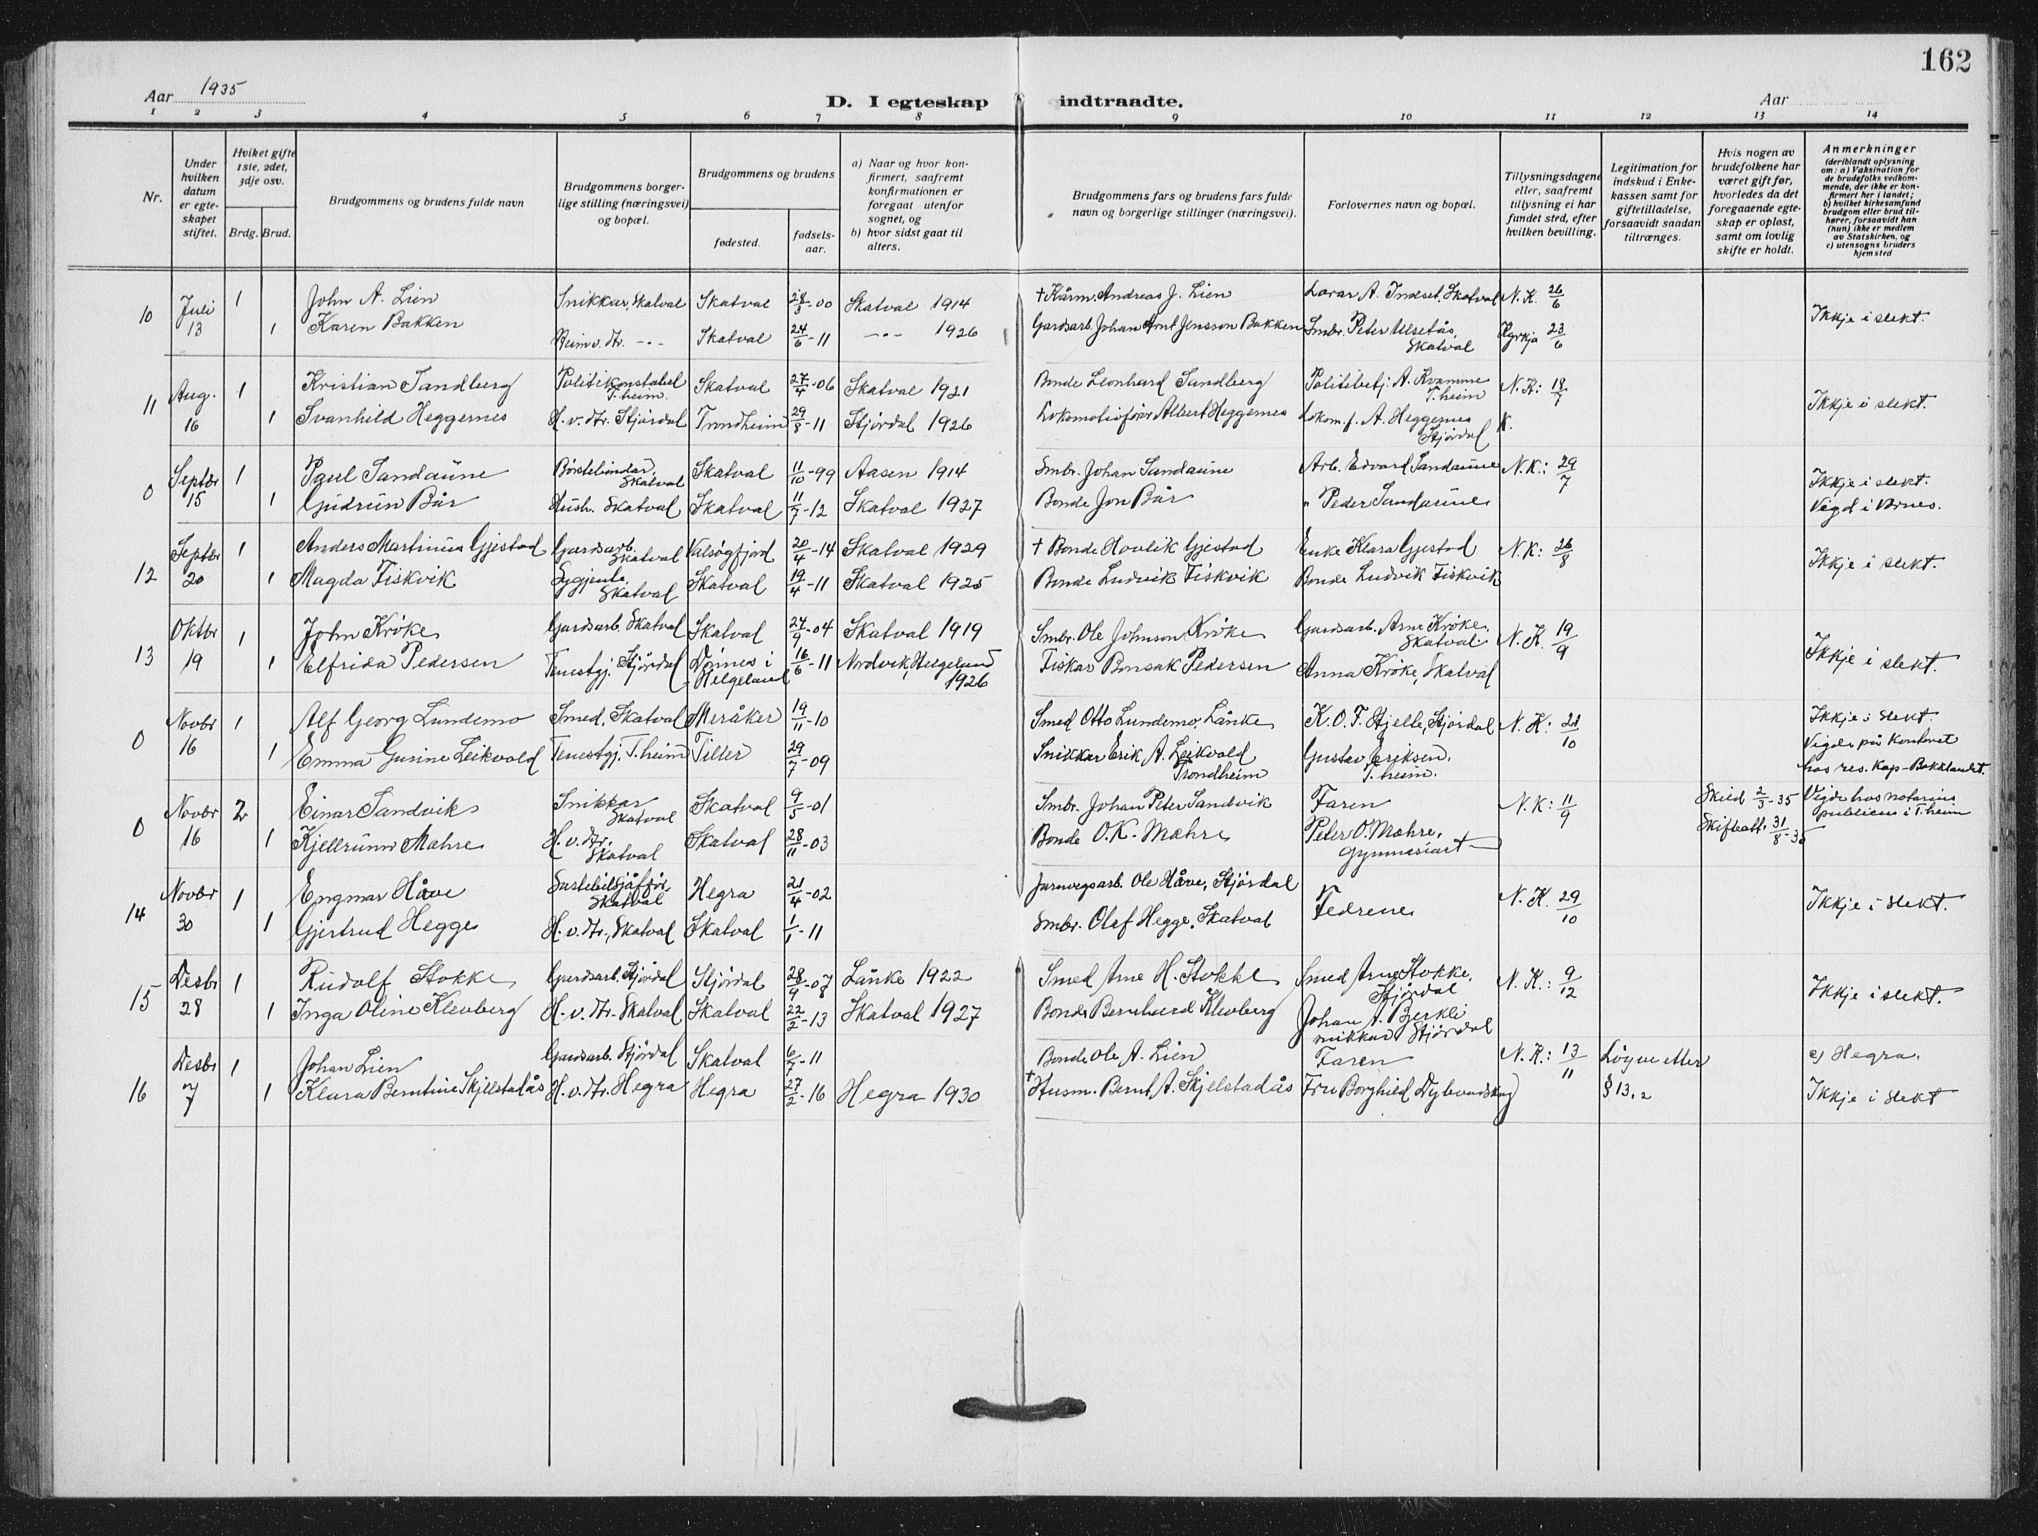 162
Aar 1935
D. I egteskap indtraadte.
Aar
1 2 3 4 5 6 7 8 9 10 11 12 13 14
Nr.
Under hvilken datum er egteskapet stiftet.
Hviket gifte 1ste, 2det, 3dje osv.
Brdg. Brud.
Brudgommens og brudens fulde navn
Brudgommens borgerlige stilling (næringsvei) og bopæl.
Brudgommens og brudens
fødested.
fødselsaar.
a) Naar og hvor konfirmert, saafremt konfirmationen er foregaat utenfor sognet, og
b) hvor sidst gaat til alters.
Brudgommens fars og brudens fars fulde navn og borgerlige stillinger (næringsvei).
Forlovernes navn og bopæl.
Tillysningsdagene eller, saafremt tillysning ei har fundet sted, efter hvilken bevilling.
Legitimation for indskud i Enkekassen samt for giftetilladelse, forsaavidt saadan tiltrænges.
Hvis nogen av brudefolkene har været gift før, hvorledes da det foregaaende egteskap er opløst, samt om lovlig skifte er holdt.
Anmerkninger (deriblandt oplysning om: a) Vaksination for de brudefolks vedkommende, der ikke er konfirmert her i landet; b) hvilket kirkesamfund brudgom eller brud tilhører, forsaavidt han (hun) ikke er medlem av Statskirken, og c) utensogns bruders hjemsted
10 Juli 13 1 John A. Lien Snikkar, Skatval Skatval 28/3-00 Skatval 1914 † Kårm. Andreas J. Lien Lorar A. Indset, Skatval N.K. 26/6 Ikkje i slekt.
1 Karen Bakken Heim v. str. -"- Skatval 24/6-11 -"- 1926 Gardsarb. Johan Arnt Jensson Bakken Smbr. Peter Ulsetås, Skatval Kyrkja 23/6
11 Aug. 16 1 Kristian Sandberg Politikonstabel T.heim. Skatval 27/4-06 Skatval 1921 Bonde Leonhard Sandberg Politibetj. A. Kvamme T.heim N.K: 18/7 Ikkje i slekt.
1 Svanhild Heggernes H.v.str. Stjørdal Trondheim 29/8-11 Stjørdal 1926 Lokomotivfører Albert Heggernes Lokom.f. A. Heggernes Stjørdal K.
0 Septbr 15 1 Paul Sandaune Børstebindar, Skatval Skatval 11/10-99 Aasen 1914 Smbr. Johan Sandaune Arb. Edvard Sandaune N.K: 29/7 Ikkje i slekt.
1 Gudrun Bår Hush. Skatval Skatval 11/7-12 Skatval 1927 Bonde Jon Bår " Peder Sandaune Vigd i Vrnes.
12 Septbr 20 1 Anders Martinus Gjestad Gardsarb. Skatval Valsøyfjord 20/4-14 Skatval 1929 † Bonde Hovlik Gjestad Enke Klara Gjestad N.K: 26/8 Ikkje i slekt.
1 Magda Fiskvik Sygjente, Skatval Skatval 19/4-11 Skatval 1925 Bonde Ludvik Fiskvik Bonde Ludvik Fiskvik
13 Oktbr 19 1 John Krøke Gardsarb. Skatval Skatval 24/9-04 Skatval 1919 Smbr. Ole Johnson Krøke Gardsarb. Arne Krøke, Skatval N.K. 19/9 Ikkje i slekt.
1 Elfrida Pedersen Tenestgj. Stjørdal Dønnes i Helgeland 16/6-11 Nordvik, Helgeland 1926 Fiskar Bonsak Pedersen Anna Krøke, Skatval
0 Novbr 16 1 Alf Georg Lundemo Smed, Skatval Meråker 19/11-10 Smed Otto Lundemo, Lånke K.O.F. Hjelle, Stjørdal N.K: 21/10 Ikkje i slekt.
1 Emma Gurine Leikvold Tenestgj. T.heim Tiller 29/7-09 Snikkar Erik A. Leikvold Trondheim Gustav Eriksen, T.heim. Vigde på kontoret hos res.kap- Bakklandet.
0 Novbr 16 2 Einar Sandvik Snikkar Skatval Skatval 9/5-01 Smbr. Johan Peter Sandvik Faren N.K: 11/9 Skild 2/3-35 Vigde hos notarius publicus i T.heim
1 Kjellrunn Mæhre H.v.str. Skatval Skatval 28/11-03 Bonde O.K. Mæhre Peter O. Mæhre, Gymnasiast Skifteatt. 31/8-35
14 Novbr 30 1 Engmar Håve Lastebilsjåfør, Skatval Hegra 21/4-02 Jarnvegsarb. Ole Håve, Stjørdal Fedrene N.K. 29/10 Ikkje i slekt.
1 Gjertrud Hegge H.v.str., Skatval Skatval 1/1-11 Smbr. Olaf Hegge, Skatval
15 Desbr 28 1 Rudolf Stokke Gardsarb. Stjørdal Stjørdal 28/9-07 Lånke 1922 Smed Arne H. Stokke Smed Arne Stokke, Stjørdal N.K.: 9/12 Ikkje i slekt.
1 Inga Oline Klevberg H.v.str. Skatval Skatval 22/2-13 Skatval 1927 Bonde Bernhard Klevberg Johan A. Bjerkli snikkar Stjørdal
16 Desbr 7 1 Johan Lien Gardsarb. Stjørdal Skatval 6/7-11 Bonde Ole A. Lien Faren N.K.: 13/11 Løyve etter § 13,2 c) Hegra.
1 Klara Berntine Skjelstadås H.v.str. Hegra Hegra 27/2-16 Hegra 1930 † Husm. Bernt A. Skjelstadås Fru Borghild Dybvadskog Ikkje i slekt